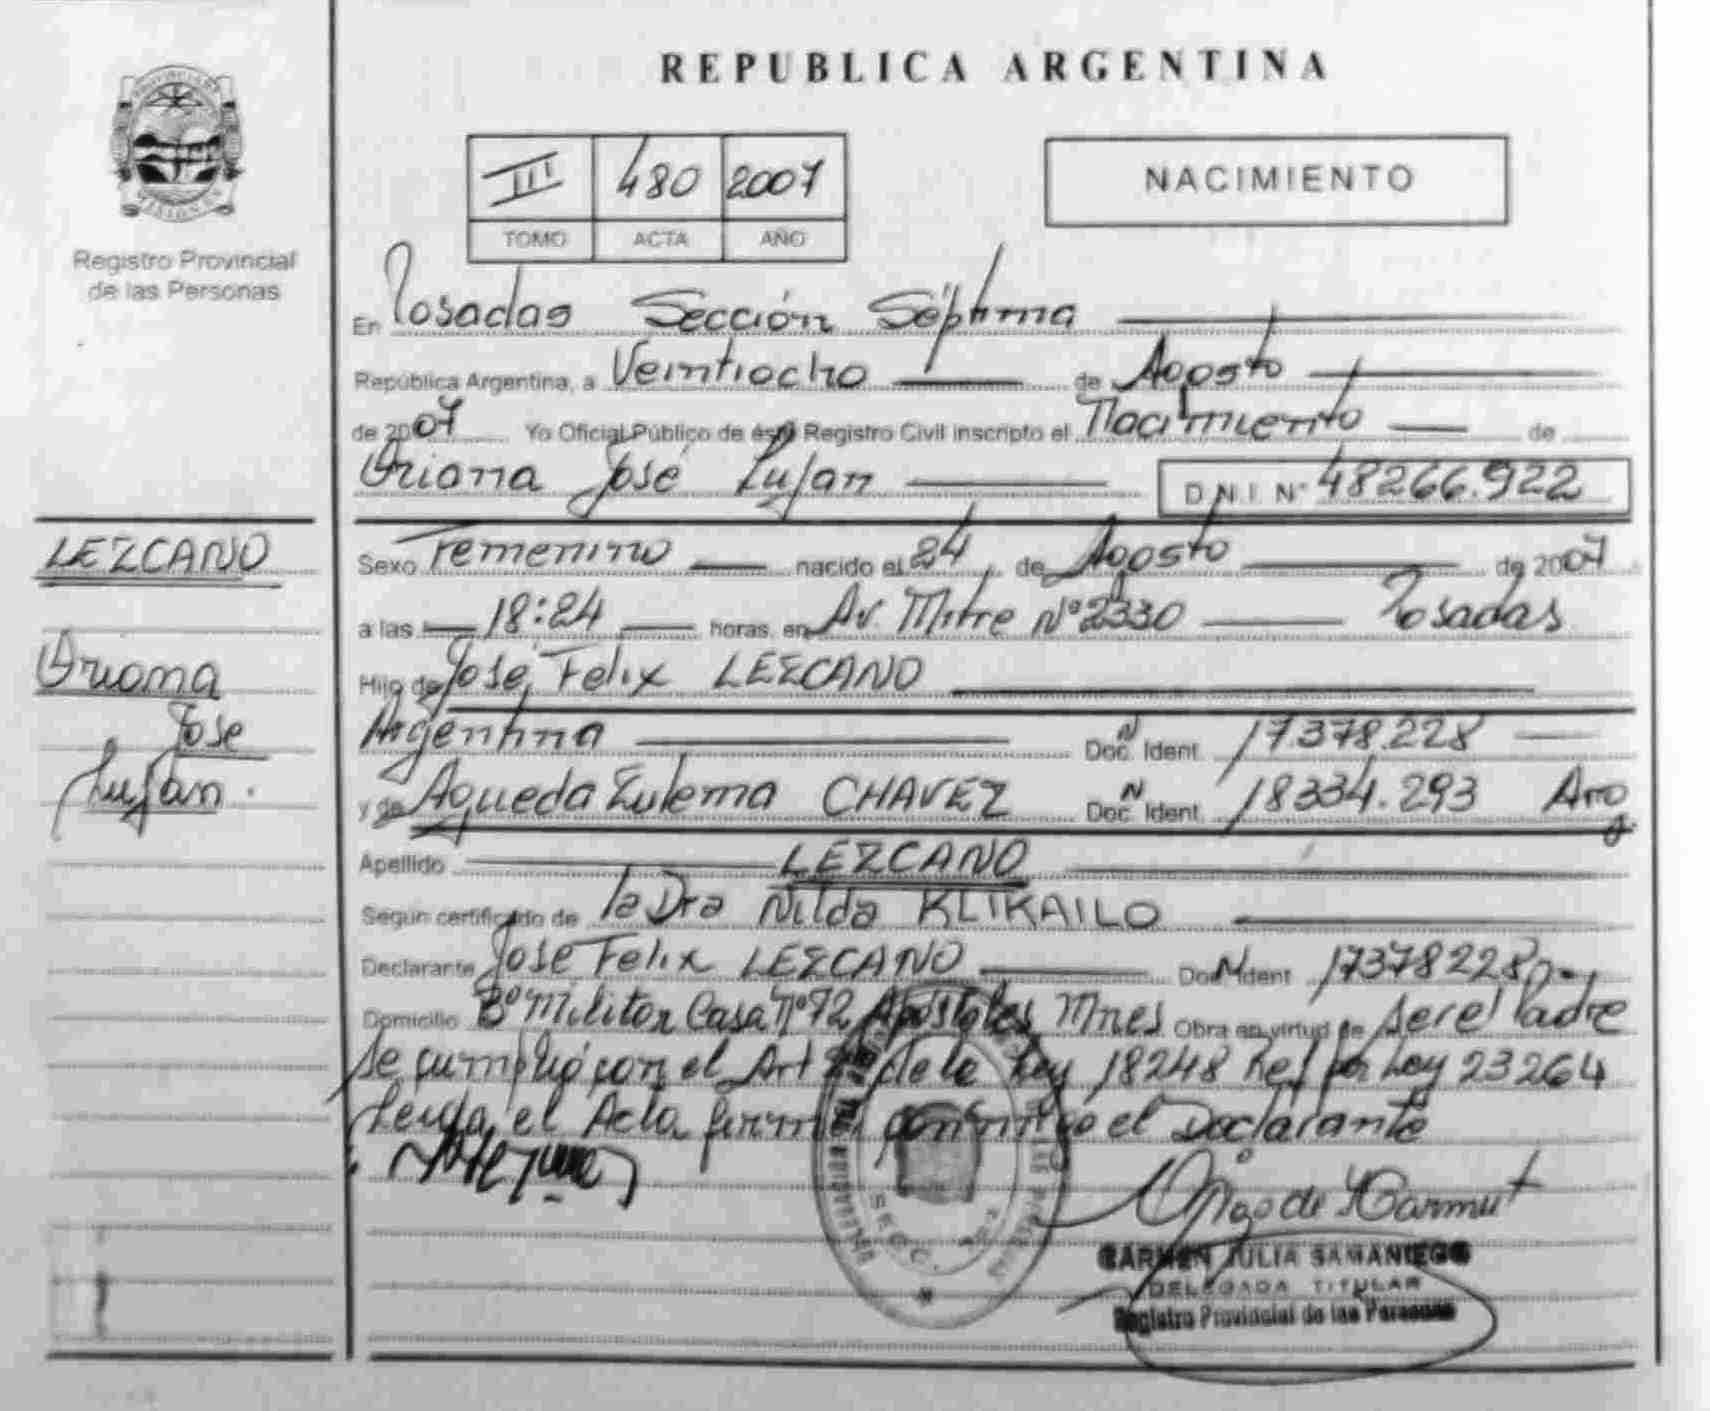 REPUBLICA ARGENTINA
III 480 2007
TOMO ACTA AÑO
NACIMIENTO
Registro Provincial
de las Personas
En Posadas Sección Séptima
República Argentina, a Veintiocho de Agosto
de 2007 Yo Oficial Público de este Registro Civil inscripto el Nacimiento de
Oriana José Lujan D.N.I. Nº 48266.922
LEZCANO
Oriana
José
Lujan.
Sexo Femenino nacido el 24 de Agosto de 2007
a las 18:24 horas, en Av. Mitre Nº 2330 Posadas
Hijo de José Felix LEZCANO
Argentina Doc. Ident. 17378.228
y de Agueda Eulema CHAVEZ Doc. Ident. 18334.293 Arg
Apellido LEZCANO
Según certificado de la Dra Nilda KLIKAILO
Declarante José Felix LEZCANO Doc. Ident. 17378228
Domicilio Bº Militar Casa Nº 72 Apóstoles Mnes Obra en virtud de ser el Padre
Se cumplió con el Art de la Ley 18248 Ref por Ley 23264
Leída el Acta firma conmigo el Declarante
CARMEN JULIA SAMANIEGO
DELEGADA TITULAR
Registro Provincial de las Personas